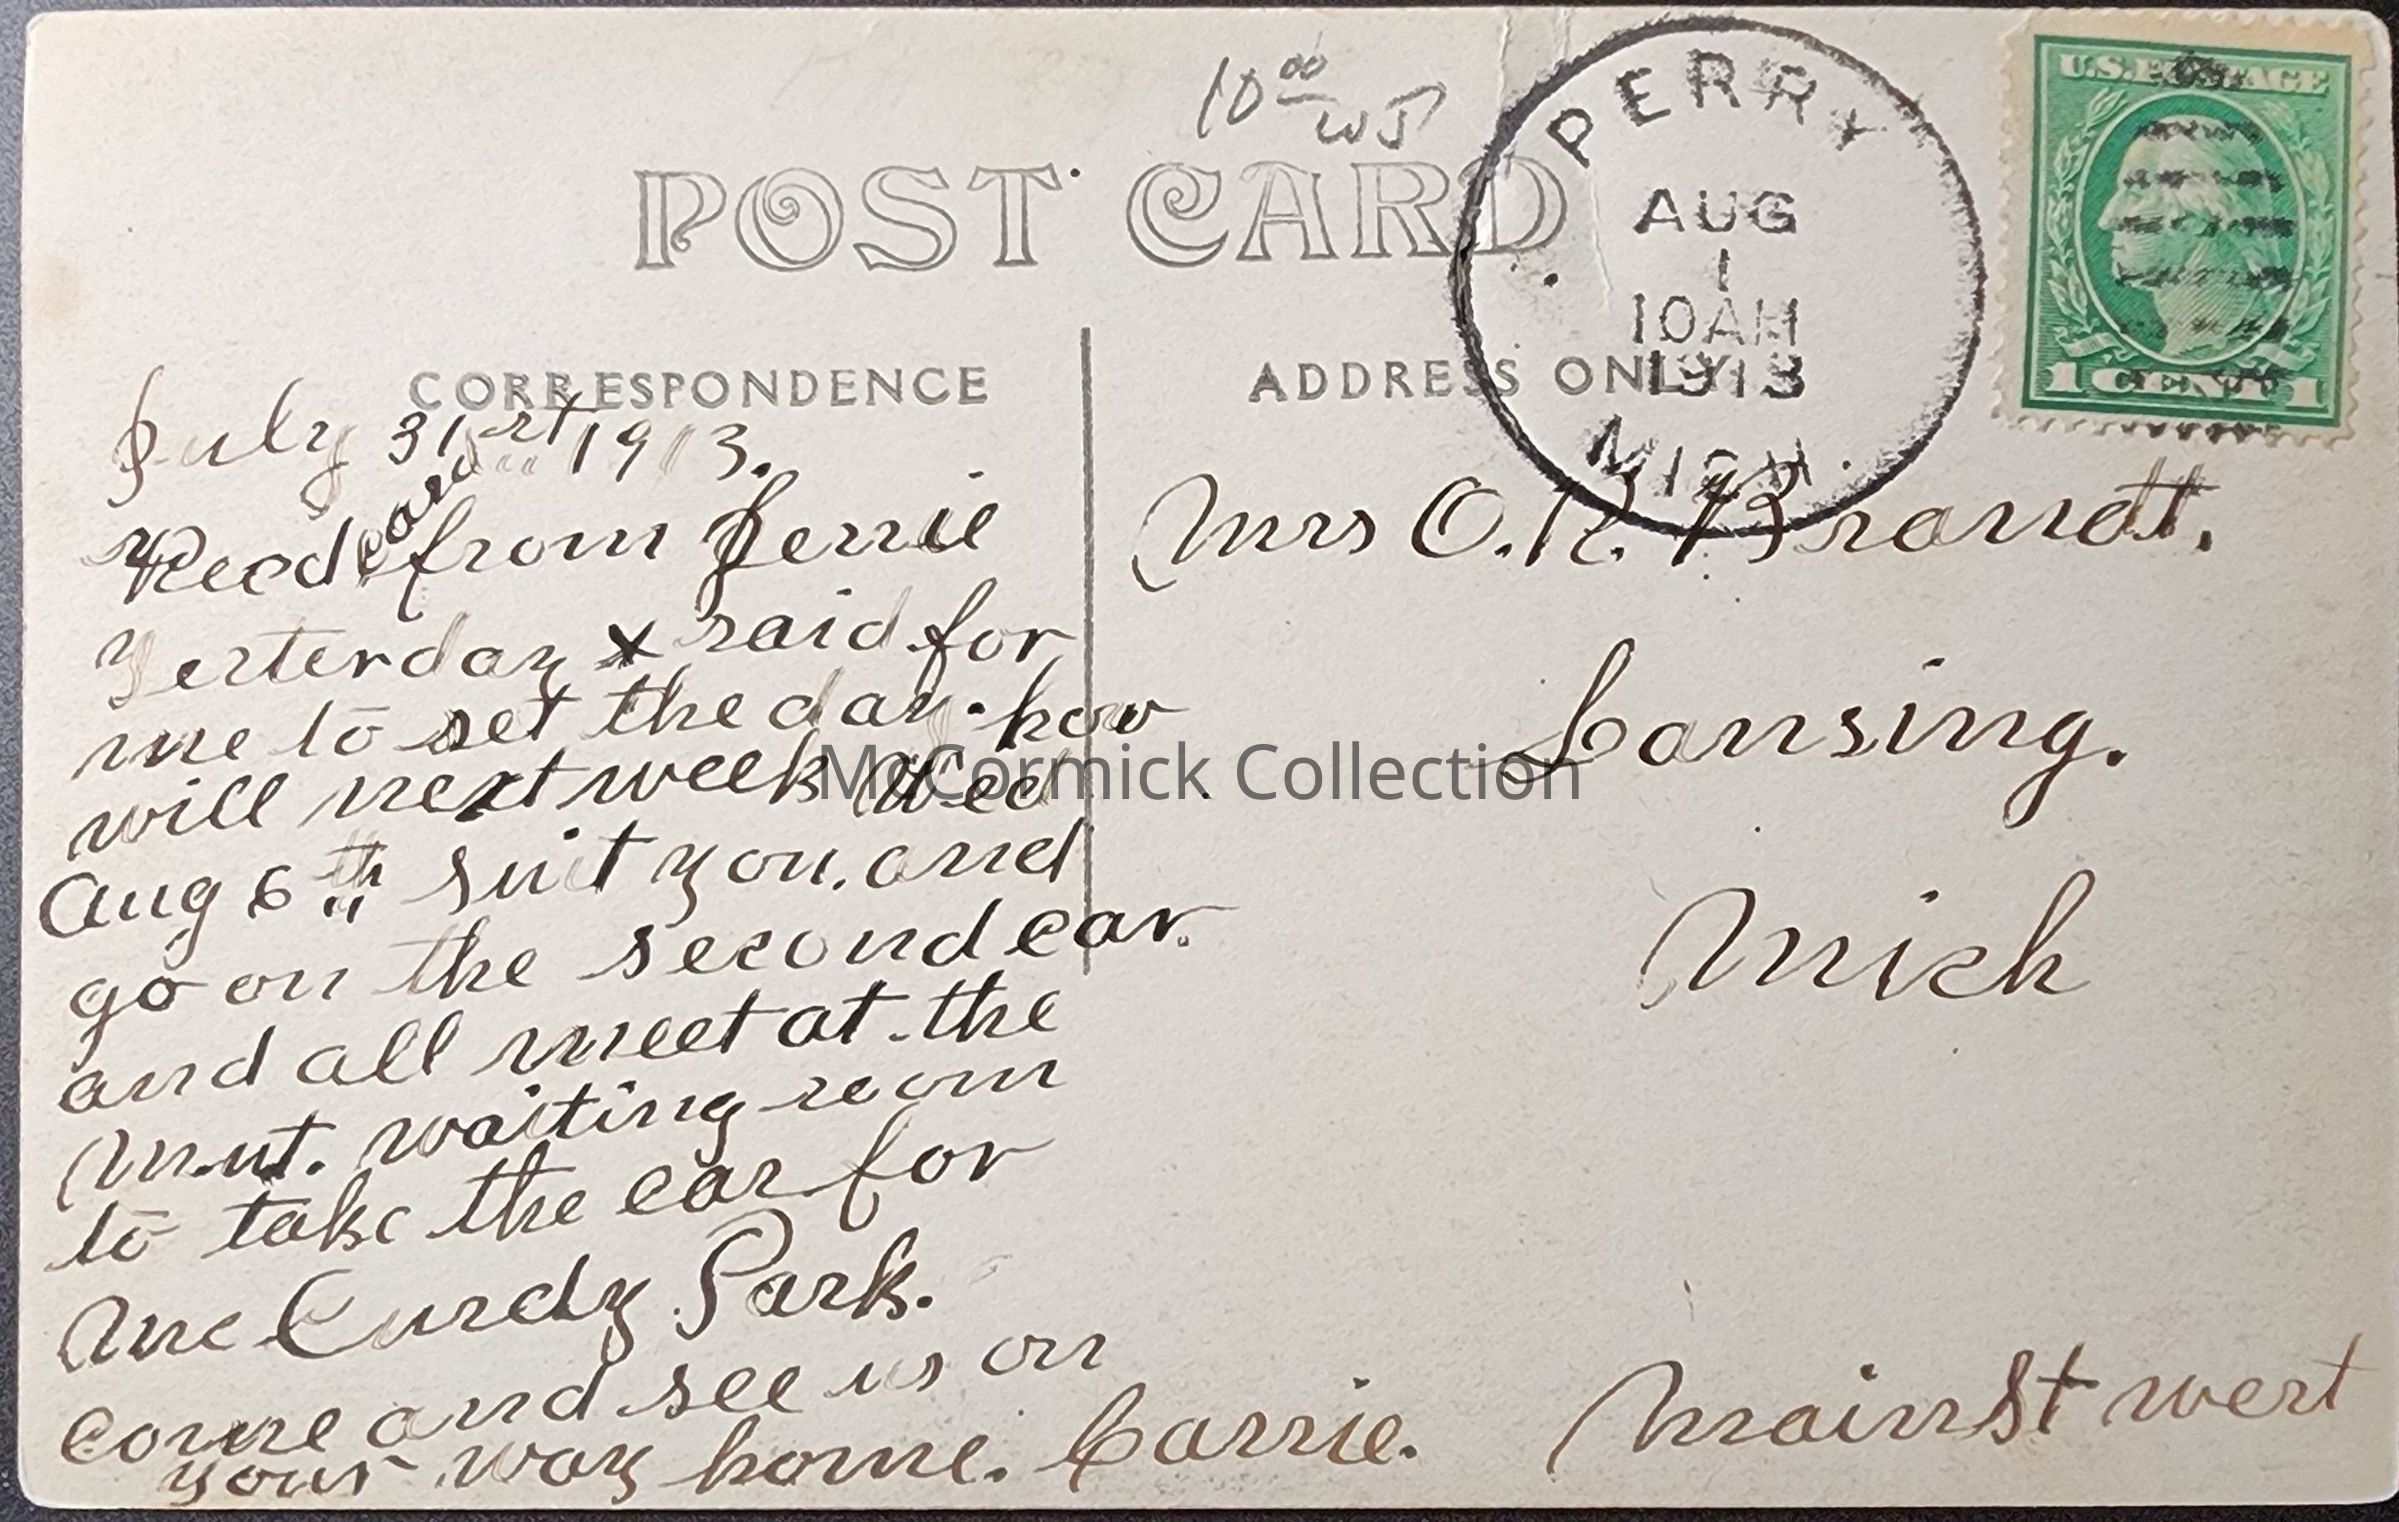 10⁰⁰ WJ
POST CARD
PERRY
AUG
1
10AM
1913
MICH.
U.S. POSTAGE
1 CENT 1
CORRESPONDENCE
ADDRESS ONLY
July 31st 1913.
Recd card from Jennie
yesterday & said for
me to set the day. how
will next week Wed
Aug 6th suit you. and
go on the second car.
and all meet at the
M.ut. waiting room
to take the car for
Mc Curdy Park.
come and see us on
your way home. Carrie.
Mrs O. R. Brandt.
Lansing.
Mich
Main St west
McCormick Collection